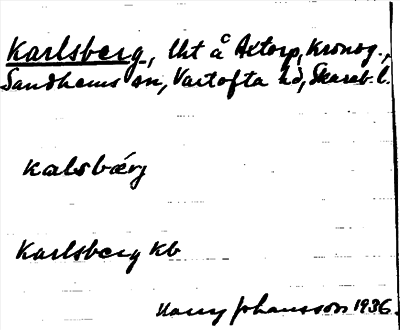 Karlsberg, lht å Axtorp, Kronog.,
Sandhems sn, Vartofta hd, Skarab. l.
kalsbærj
Karlsberg kb
Harry Johansson 1936.